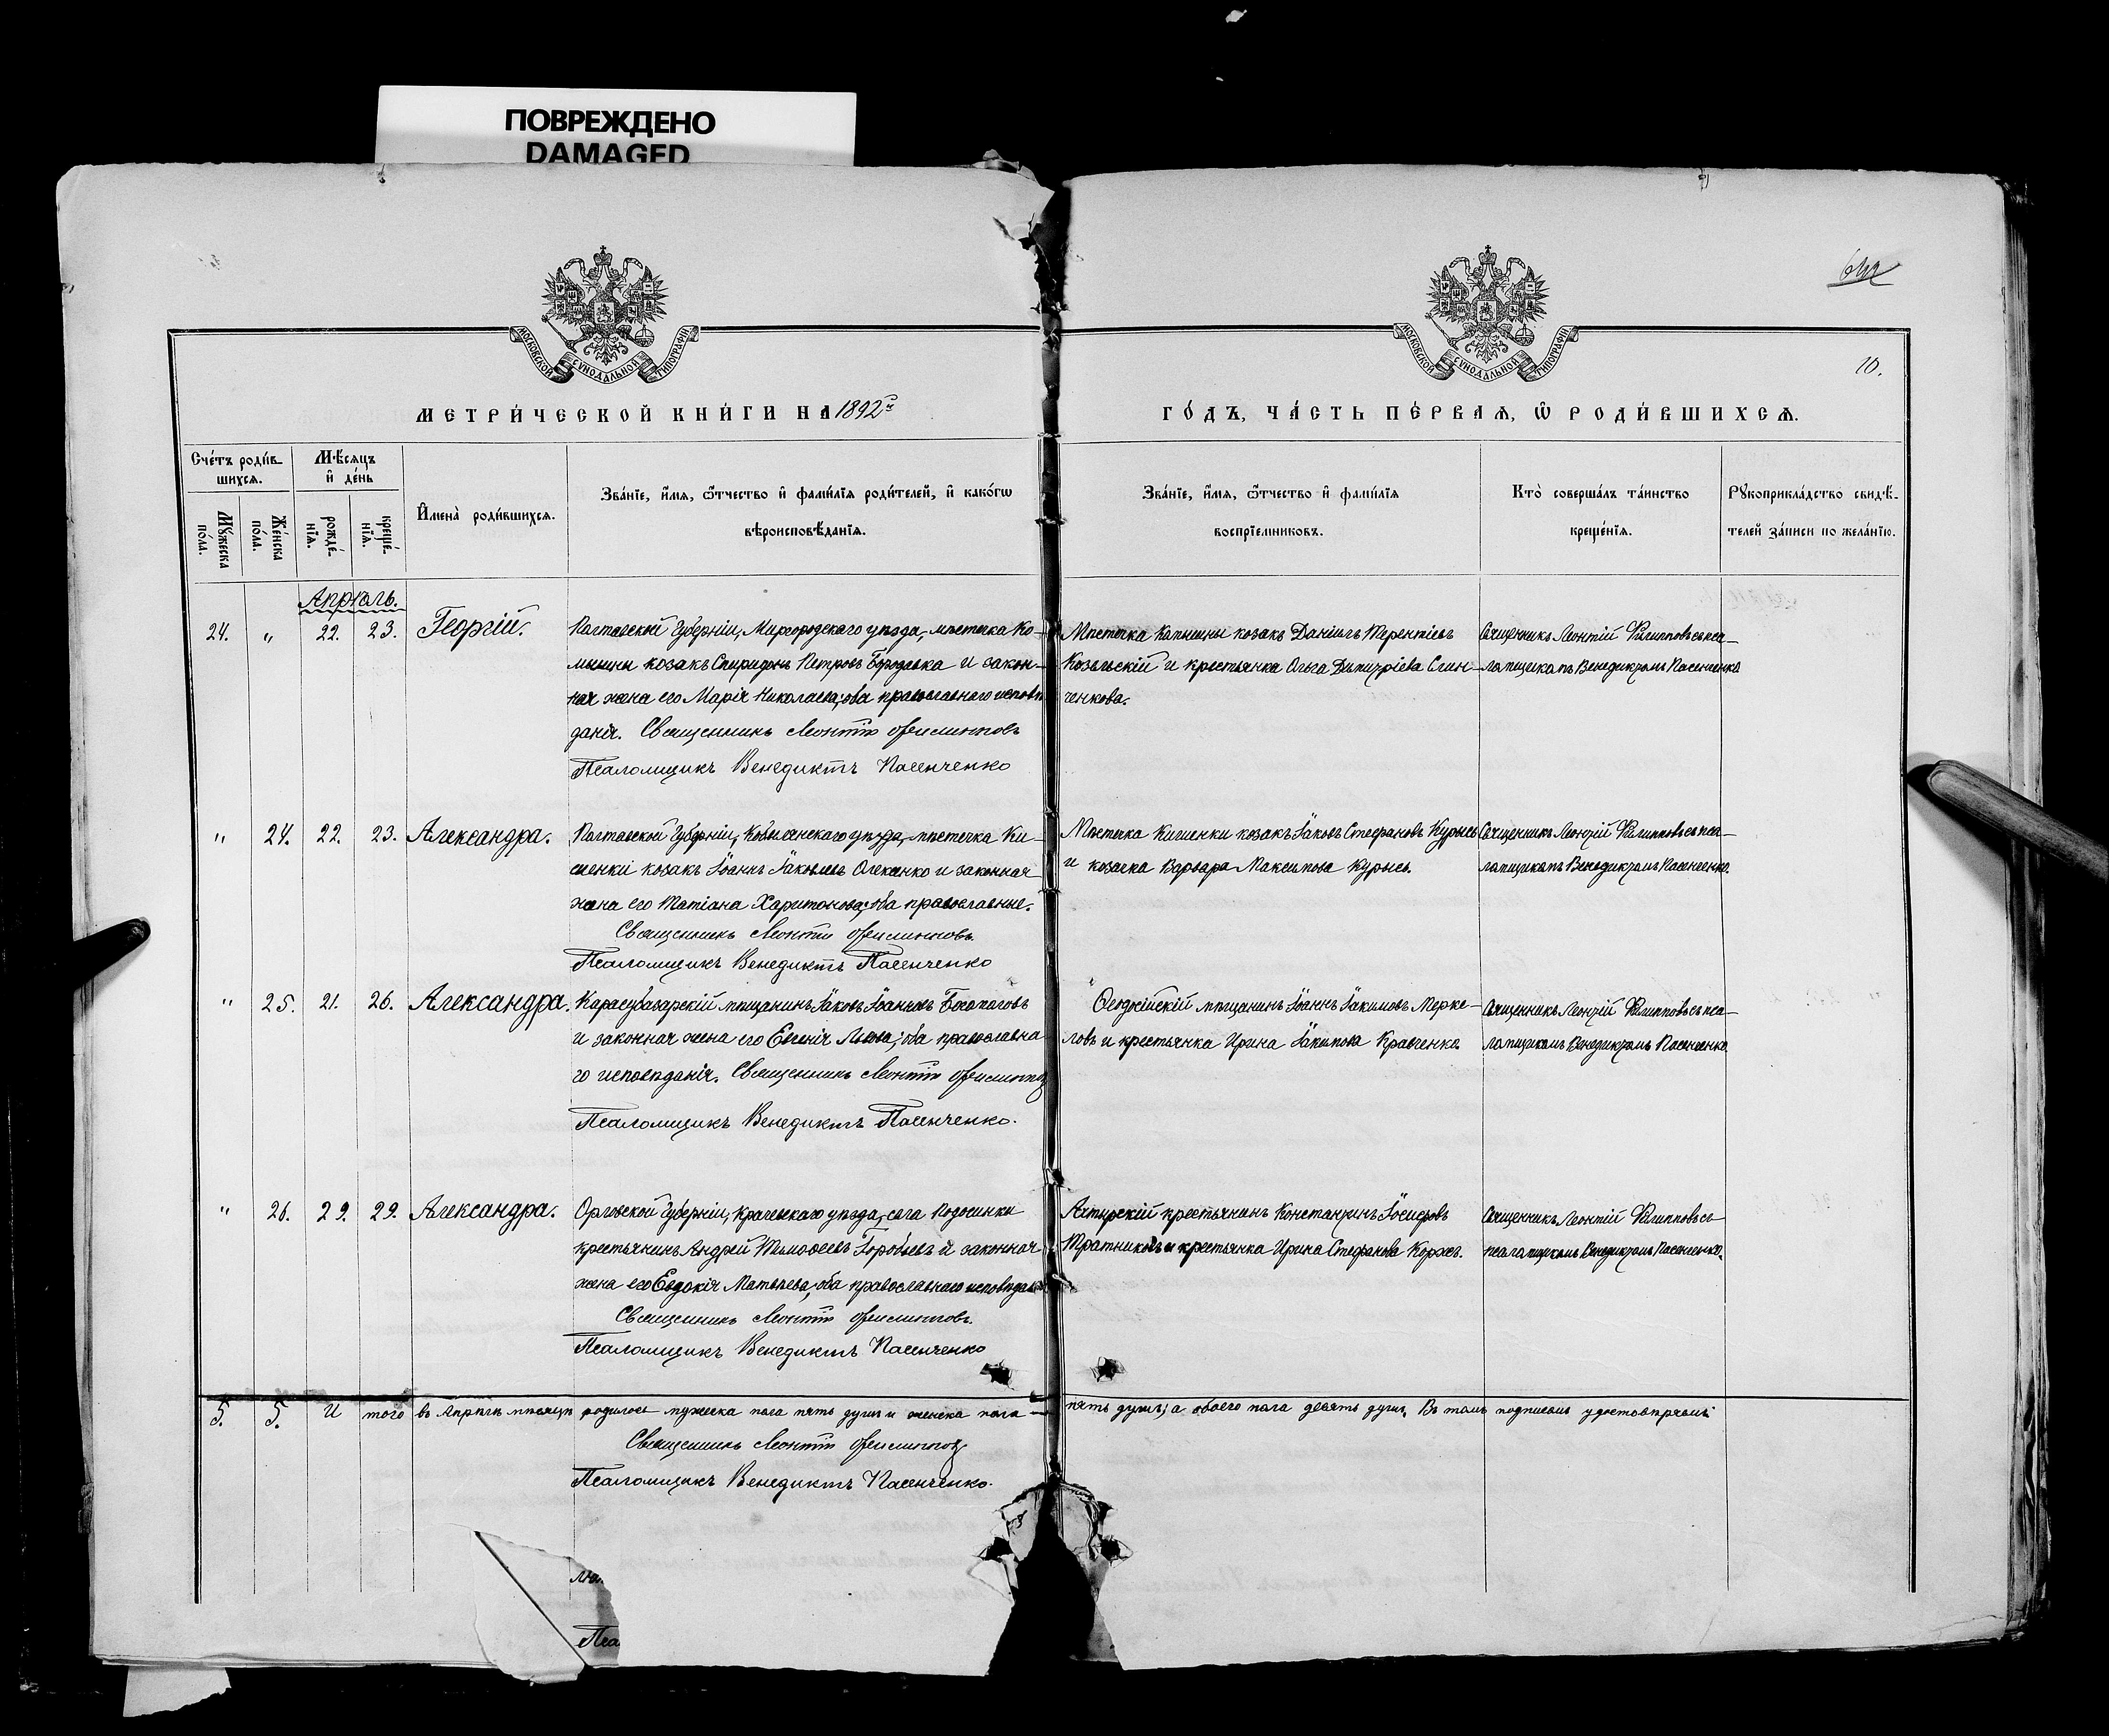 ПОВРЕЖДЕНО
DAMAGED
10.
МОСКОВСКОЙ СѴНОДАЛЬНОЙ ТИПОГРАФІИ
МОСКОВСКОЙ СѴНОДАЛЬНОЙ ТИПОГРАФІИ
МЕТРИ́ЧЕСКОЙ КНИ́ГИ НА 1892й
ГО́ДЪ, ЧА́СТЬ ПЕ́РВАѦ, Ѡ РОДИ́ВШИХСѦ.
Сче́тъ роди́в-
шихсѧ.
Мѣ́сѧцъ
и҆ де́нь
Мꙋ́жеска по́ла.
Же́нска по́ла.
рожде́-
нїѧ.
креще́-
нїѧ.
И҆мена̀ роди́вшихсѧ.
Зва́нїе, и҆́мѧ, ѻ҆́тчество и҆ фами́лїѧ роди́телей, и҆ како́гѡ
вѣроисповѣ́данїѧ.
Зва́нїе, и҆́мѧ, ѻ҆́тчество и҆ фами́лїѧ
воспрїемниковъ.
Кто̀ соверша́лъ та́инство
креще́нїѧ.
Рꙋкоприкла́дство свидѣ́-
телей за́писи по жела́нїю.
Апрѣль.
24. " 22. 23. Георгій.
Полтавской Губерніи, Миргородскаго уѣзда, мѣстечка Ко-
мышны козакъ Спиридонъ Петровъ Бороздавка и закон-
ная жена его Марія Николаева; оба православнаго исповѣ
данія. Священникъ Леонтій Филипповъ
Псаломщикъ Венедиктъ Пасенченко
Мѣстечка Комышны козакъ Даніилъ Терентіевъ
Козельскій и крестьянка Ольга Димитріева Слин-
ченкова.
Священникъ Леонтій Филипповъ съ пса-
ломщикомъ Венедиктомъ Пасенченко
" 24. 22. 23. Александра.
Полтавской Губерніи, Кобелякскаго уѣзда, мѣстечка Ки-
шенки козакъ Іоаннъ Іаковлевъ Олексенко и законная
жена его Татіана Харитонова; оба православные.
Священникъ Леонтій Филипповъ.
Псаломщикъ Венедиктъ Пасенченко
Мѣстечка Кишенки козакъ Іаковъ Стефановъ Курысь
и козачка Варвара Максимова Курысь.
Священникъ Леонтій Филипповъ съ пса-
ломщикомъ Венедиктомъ Пасенченко.
" 25. 21. 26. Александра.
Карасубазарскій мѣщанинъ Іаковъ Іоанновъ
и законная жена его Евгенія Львова; оба православна
го исповѣданія. Священникъ Леонтій Филипповъ
Псаломщикъ Венедиктъ Пасенченко.
Ѳеодосійскій мѣщанинъ Іоаннъ Іакимовъ Мерке-
ловъ и крестьянка Ирина Іакимова Кравченко.
Священникъ Леонтій Филипповъ съ пса-
ломщикомъ Венедиктомъ Пасенченко.
" 26. 29. 29. Александра.
Орловской Губерніи, Крачевскаго уѣзда, села Подосинки
крестьянинъ Андрей Тимофеевъ Горобьевъ и законная
жена его Евдокія Матвѣева, оба православнаго исповѣданія
Священникъ Леонтій Филипповъ.
Псаломщикъ Венедиктъ Пасенченко
Ахтирскій крестьянинъ Константинъ Іосифовъ
Тратниковъ и крестьянка Ирина Стефанова Коржъ.
Священникъ Леонтій Филипповъ съ
псаломщикомъ Венедиктомъ Пасенченко.
5. 5. И того въ Апрѣлѣ мѣсяцѣ родилось мужеска пола пять душъ и женска пола — пять душъ; а обоего пола девять душъ. Въ томъ подписомъ удостовѣряемъ:
Священникъ Леонтій Филипповъ
Псаломщикъ Венедиктъ Пасенченко.
Пса